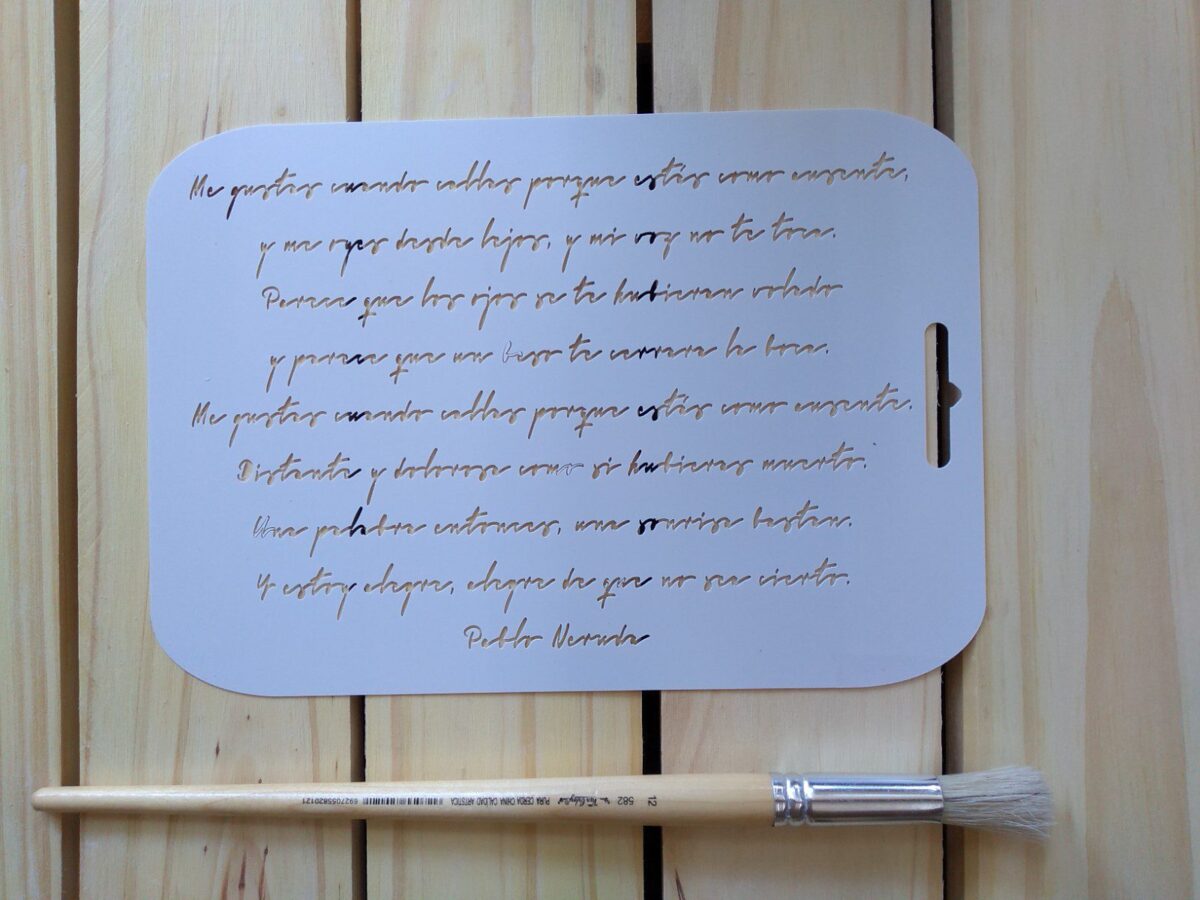 Me gustas cuando callas porque estás como ausente,
y me oyes desde lejos, y mi voz no te toca.
Parece que los ojos se te hubieran volado
y parece que un beso te cerrara la boca.
Me gustas cuando callas porque estás como ausente.
Distante y dolorosa como si hubieras muerto.
Una palabra entonces, una sonrisa bastan.
Y estoy alegre, alegre de que no sea cierto.
Pablo Neruda
12 582 PURA CERDA CHINA CALIDAD ARTISTICA 6927055820121